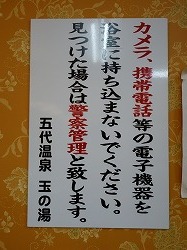 カメラ、携帯電話等の電子機器を
浴室に持ち込まないでください。
見つけた場合は警察管理と致します。
五代温泉 玉の湯